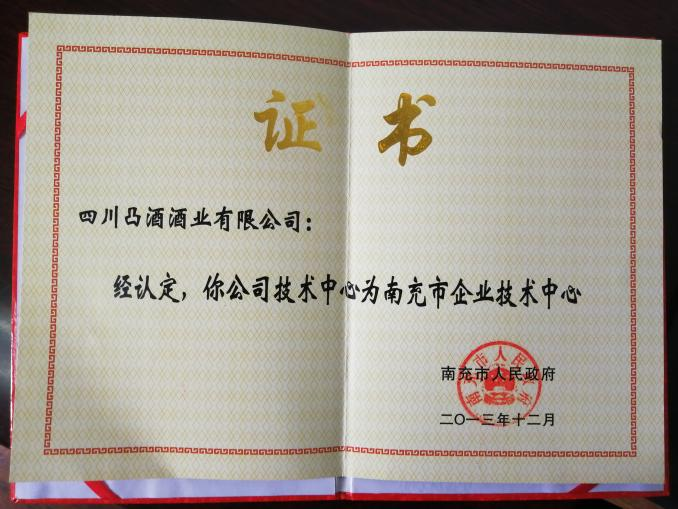 证书
四川凸酒酒业有限公司：
经认定，你公司技术中心为南充市企业技术中心
南充市人民政府
南充市人民政府
二〇一三年十二月